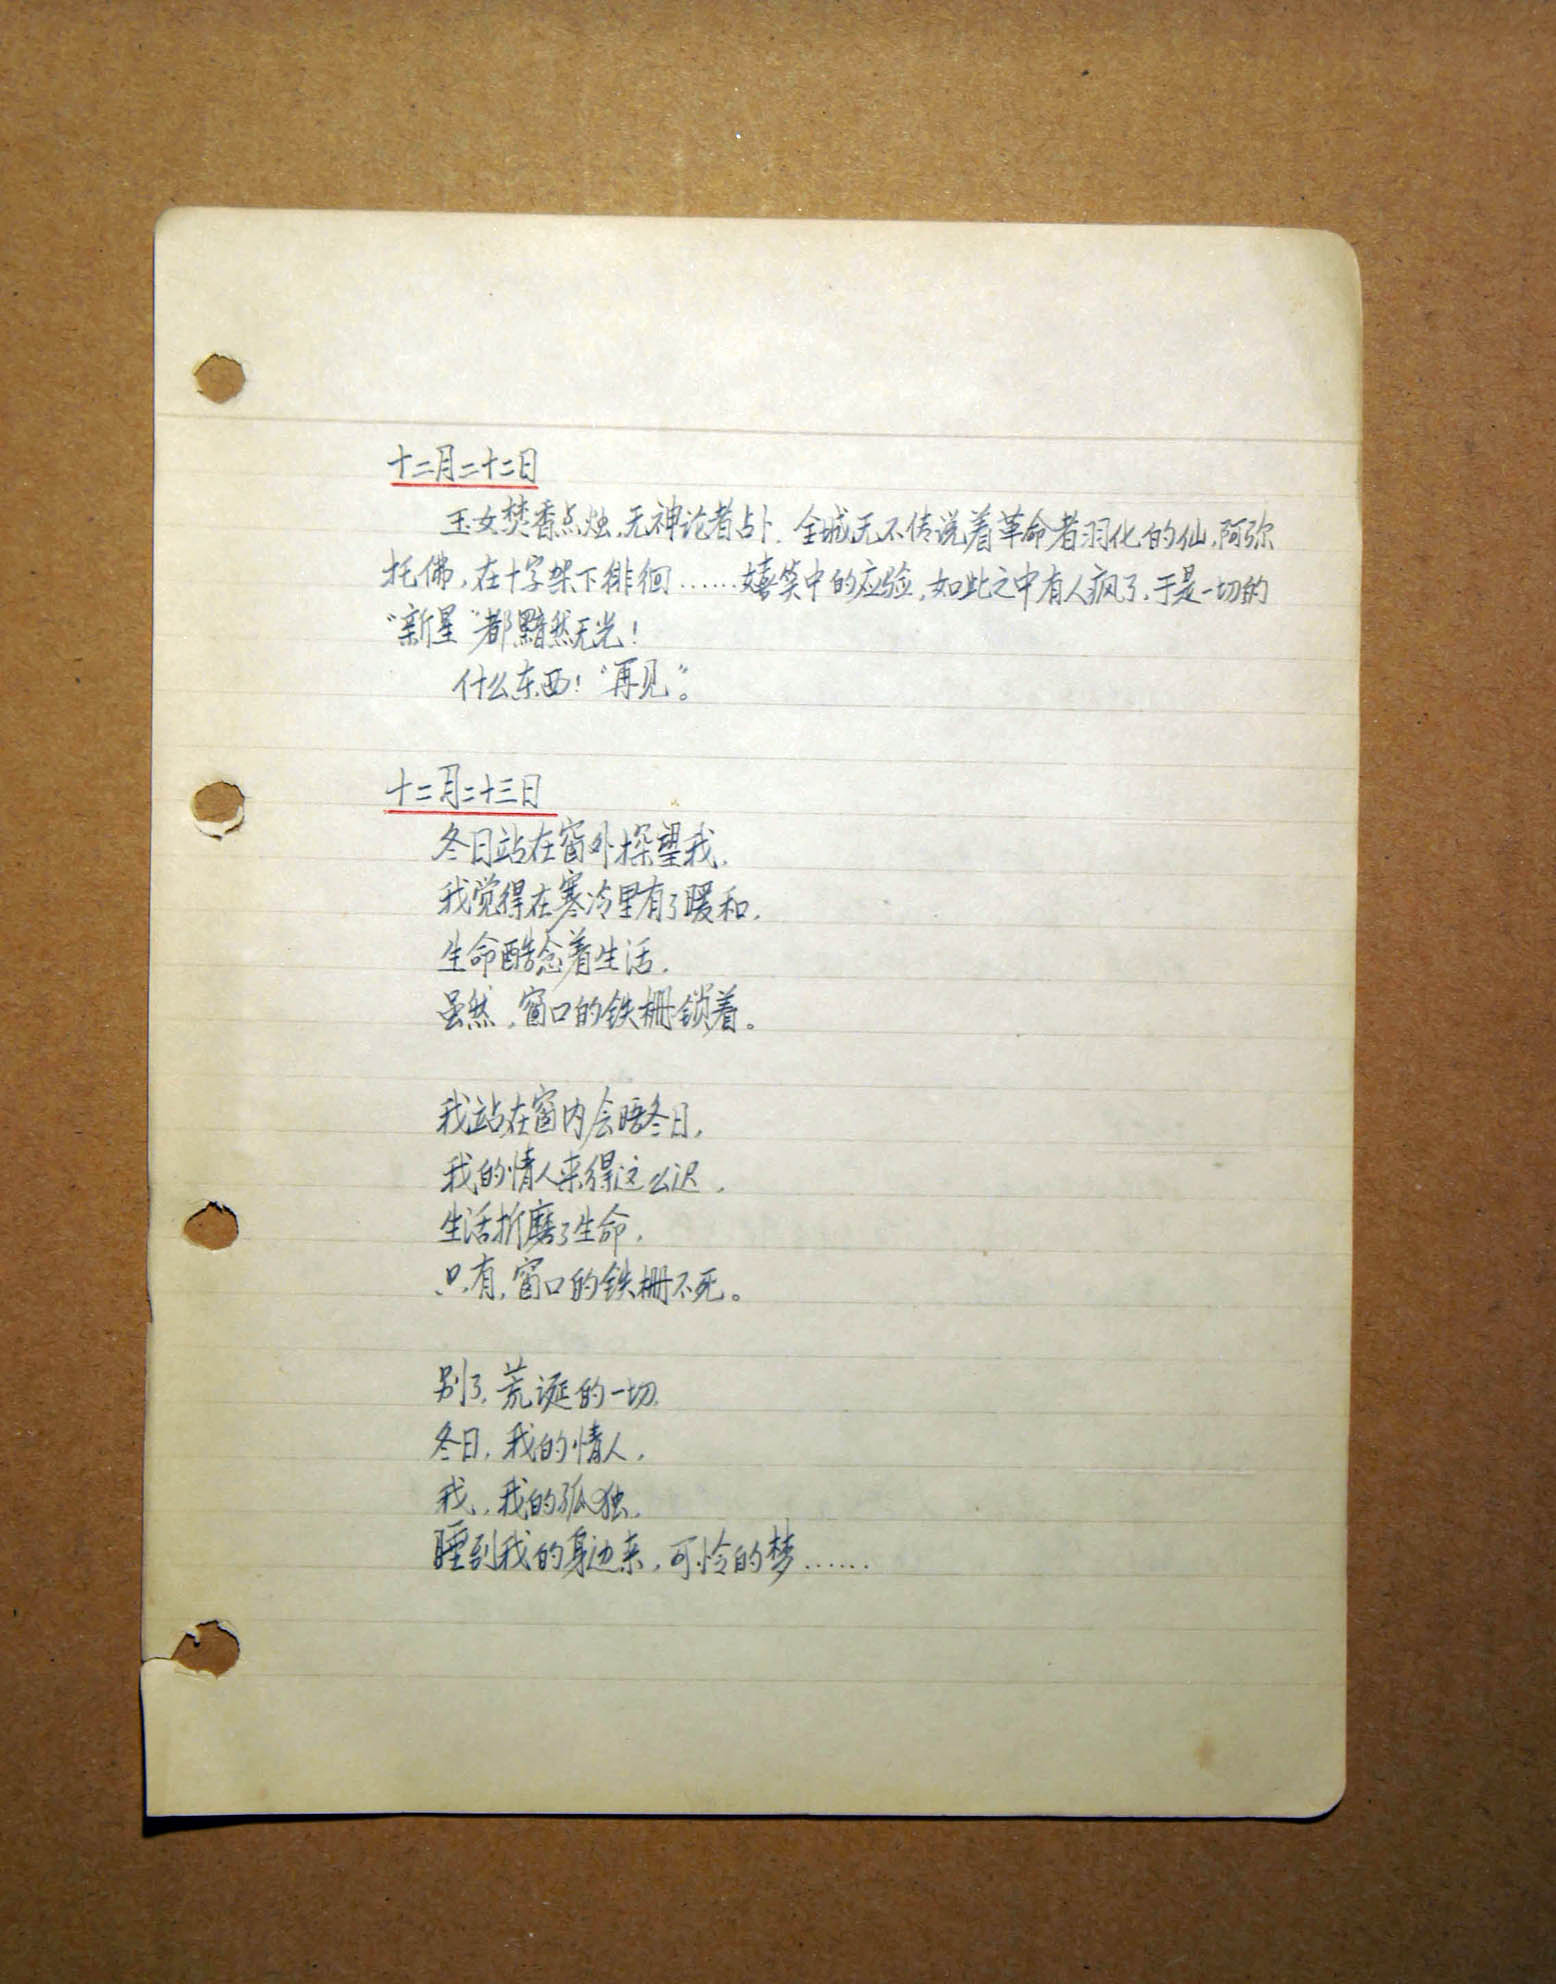 十二月二十二日
玉女焚香点烛,无神论者占卜.全城无不传说着革命者羽化的仙,阿弥
托佛,在十字架下徘徊……嬉笑中的应验,如此之中有人疯了,于是一切的
“新星”都黯然无光!
什么东西!“再见”。
十二月二十三日
冬日站在窗外探望我,
我觉得在寒冷里有了暖和,
生命酷念着生活,
虽然,窗口的铁栅锁着。
我站在窗内会晤冬日,
我的情人来得这么迟,
生活折磨了生命,
只有,窗口的铁栅不死。
别了,荒诞的一切,
冬日,我的情人,
我,我的孤独,
睡到我的身边来,可怜的梦……